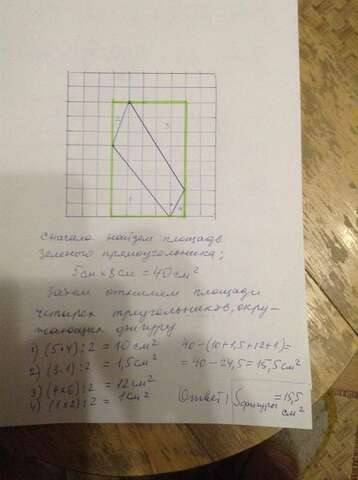 2
3
1
4
Сначала найдем площадь
зеленого прямоугольника;
5см × 8см = 40см²
Затем отнимем площади
четырех треугольников, окру-
жающих фигуру
1) (5·4):2 = 10см² 40-(10+1,5+12+1)=
2) (3·1):2 = 1,5см² =40-24,5=15,5см²
3) (4×6):2 = 12см²
4) (1×2):2 = 1см² Ответ: Sфигуры =15,5
см²